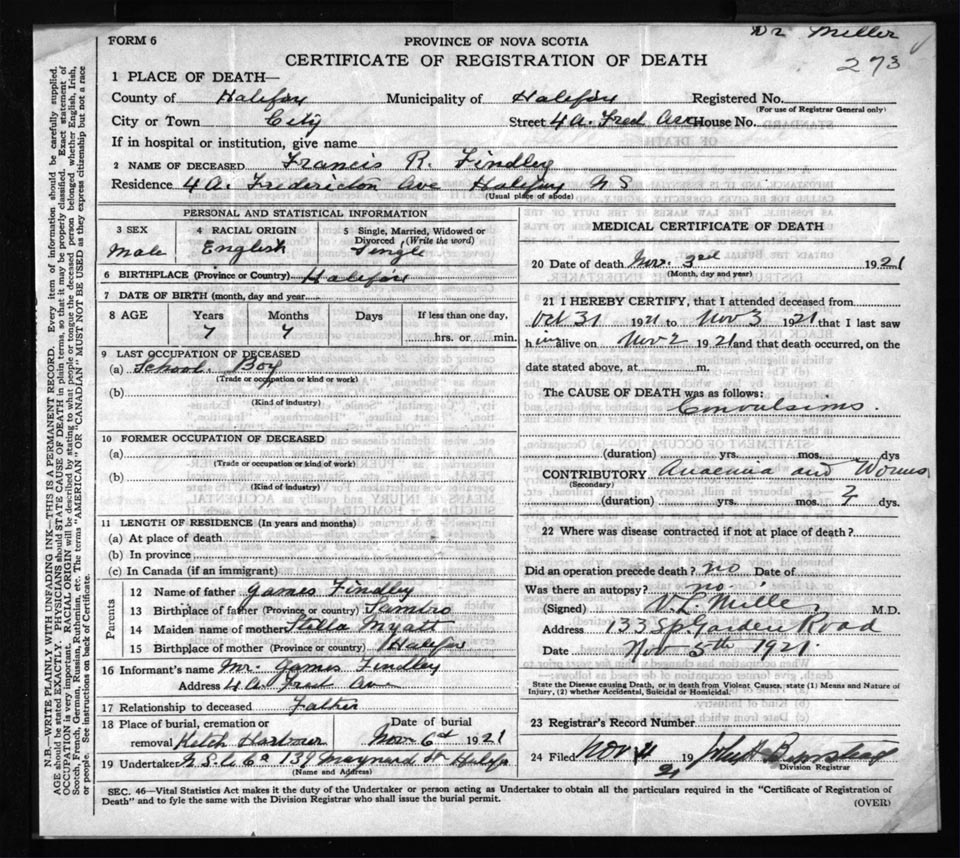 Dr Miller
273
FORM 6
PROVINCE OF NOVA SCOTIA
CERTIFICATE OF REGISTRATION OF DEATH
1 PLACE OF DEATH—
County of Halifax Municipality of Halifax Registered No.
(For use of Registrar General only)
City or Town City Street 4 A. Fred Ave House No.
If in hospital or institution, give name
2 NAME OF DECEASED Francis R. Findley
Residence 4 A. Fridericton Ave Halifax N S
(Usual place of abode)
PERSONAL AND STATISTICAL INFORMATION
3 SEX Male
4 RACIAL ORIGIN English
5 Single, Married, Widowed or Divorced (Write the word) Single
6 BIRTHPLACE (Province or Country) Halifax
7 DATE OF BIRTH (month, day and year
8 AGE Years 7 Months 4 Days If less than one day, hrs. or min.
9 LAST OCCUPATION OF DECEASED
(a) School Boy
(Trade or occupation or kind or work)
(b)
(Kind of industry)
10 FORMER OCCUPATION OF DECEASED
(a)
(Trade or occupation or kind of work)
(b)
(Kind of Industry)
11 LENGTH OF RESIDENCE (In years and months)
(a) At place of death
(b) In province
(c) In Canada (if an immigrant)
Parents
12 Name of father James Findley
13 Birthplace of father (Province or country) Sambro
14 Maiden name of mother Stella Myatt
15 Birthplace of mother (Province or country) Halifax
16 Informant's name Mr. James Findley
Address 4 A Fred Ave
17 Relationship to deceased Father
18 Place of burial, cremation or removal Ketch Harbour Date of burial Nov 6th 1921
19 Undertaker N.S.U Co 139 Maynard St Halifax
(Name and Address)
MEDICAL CERTIFICATE OF DEATH
20 Date of death Nov. 3rd 1921
(Month, day and year)
21 I HEREBY CERTIFY, that I attended deceased from
Oct 31 1921 to Nov 3 1921 that I last saw
him alive on Nov 2 1921 and that death occurred, on the
date stated above, at m.
The CAUSE OF DEATH was as follows:
Convulsions.
(duration) yrs. mos. dys
CONTRIBUTORY Anaemia and Worms
(Secondary)
(duration) yrs. mos. ? dys.
22 Where was disease contracted if not at place of death?
Did an operation precede death? no Date of
Was there an autopsy? no
(Signed) V. L. Miller M.D.
Address 133 Sp Garden Road
Date Nov 5th 1921.
State the Disease causing Death, or in death from Violent Causes, state (1) Means and Nature of
Injury, (2) whether Accidental, Suicidal or Homicidal.
23 Registrar's Record Number
24 Filed Nov 19 21
Division Registrar
SEC. 46—Vital Statistics Act makes it the duty of the Undertaker or person acting as Undertaker to obtain all the particulars required in the "Certificate of Registration of
Death" and to fyle the same with the Division Registrar who shall issue the burial permit.
(OVER)
N.B.—WRITE PLAINLY WITH UNFADING INK—THIS IS A PERMANENT RECORD. Every item of information should be carefully supplied.
AGE should be stated EXACTLY. PHYSICIANS should STATE CAUSE OF DEATH in plain terms, so that it may be properly classified. Exact statement of
OCCUPATION is very important. RACIAL ORIGIN will be described by stating to what people or tongue the deceased person belonged whether English, Irish,
Scotch, French, German, Russian, Ruthenian, etc. The terms "AMERICAN" OR "CANADIAN" MUST NOT BE USED as they express citizenship but not a race
or people. See instructions on back of Certificate.